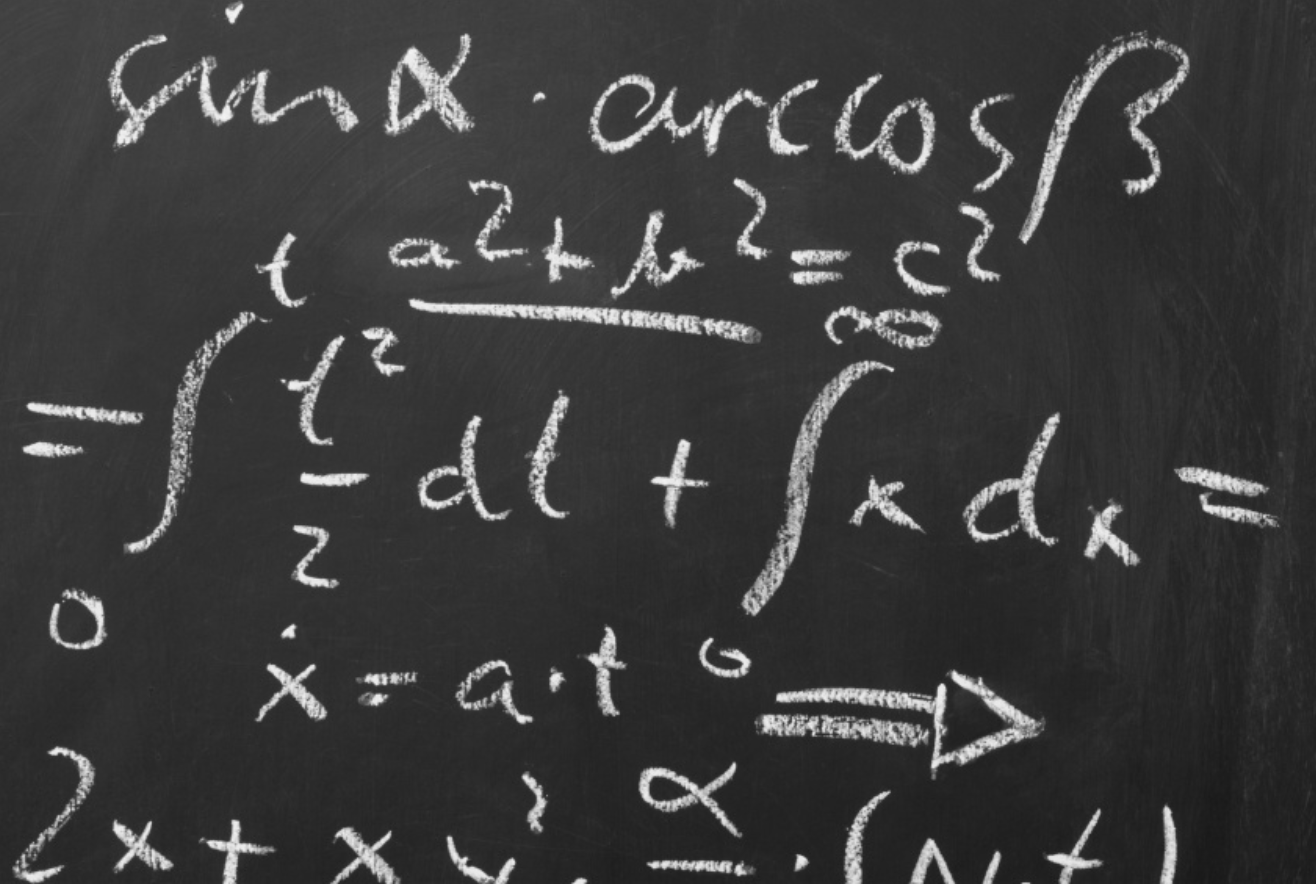 sin α · arccos β
a² + b² = c²
= ∫₀ᵗ t²/2 dt + ∫₀^∞ x dx =
ẋ = a · t ⇒
2x + xy² α